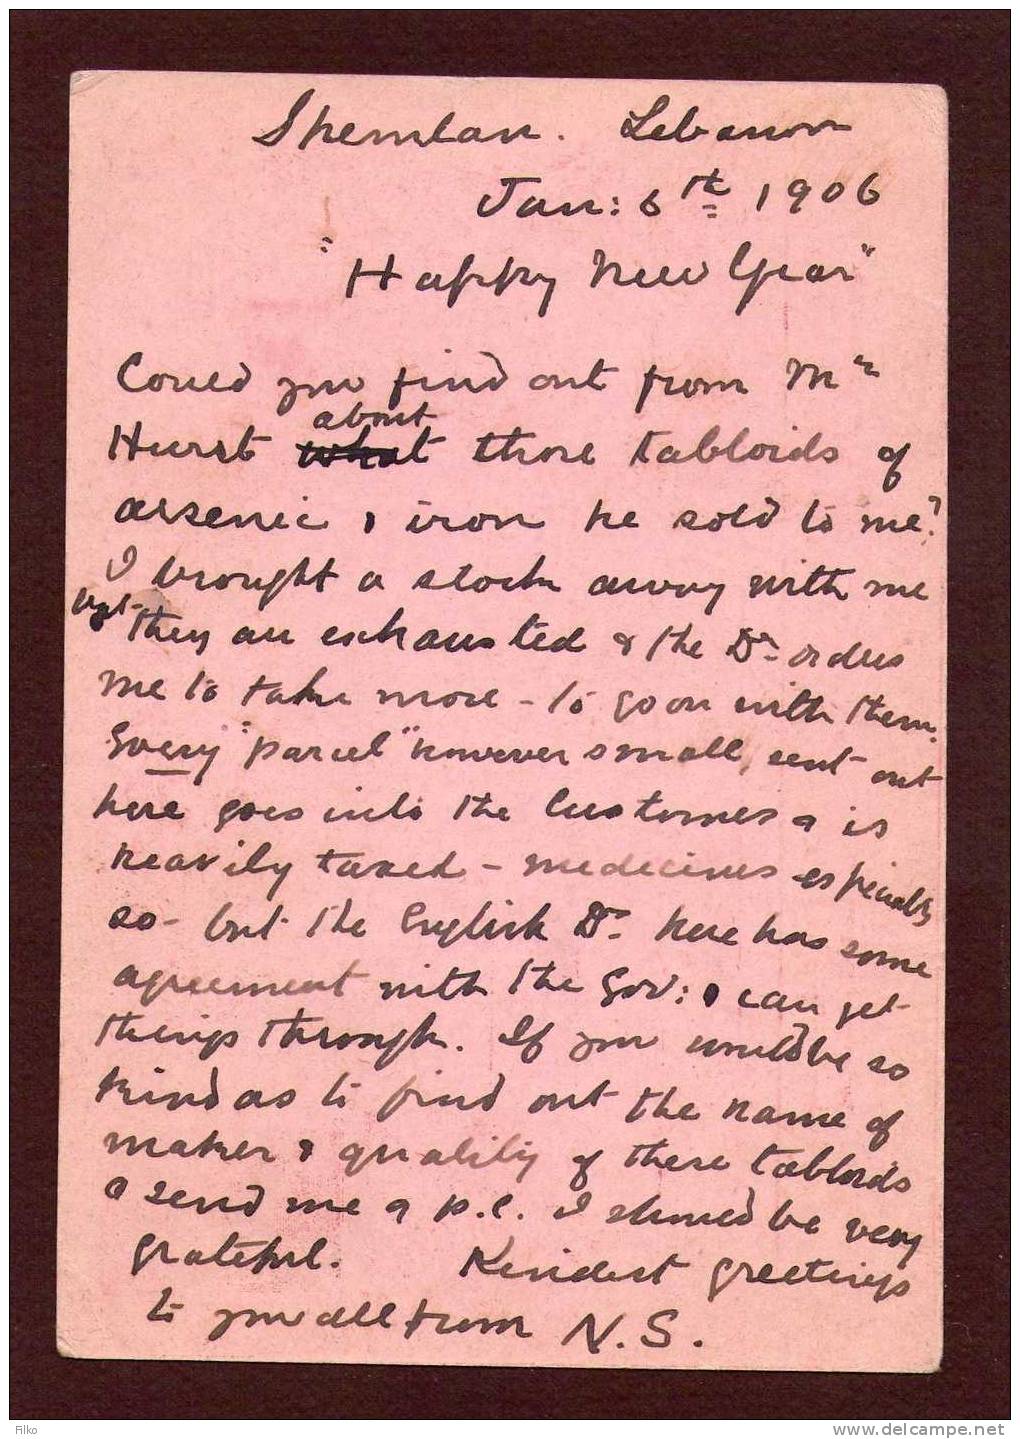 Shemlan. Lebanon
Jan: 6th 1906
"Happy New Year"
Could you find out from Mr
about
Hurst what those tabloids of
arsenic & iron he sold to me?
I brought a stock away with me
but they are exhausted & the Dr. orders
me to take more - to go on with them.
Every "parcel" however small, sent out
here goes into the Customes & is
heavily taxed - medecines especially
so - but the English Dr. here has some
agreement with the Gov: & can get
things through. If you would be so
kind as to find out the name of
maker & quality of these tabloids
& send me a p.c. I should be very
grateful. Kindest greetings
to you all from N.S.
Filko
www.delcampe.net